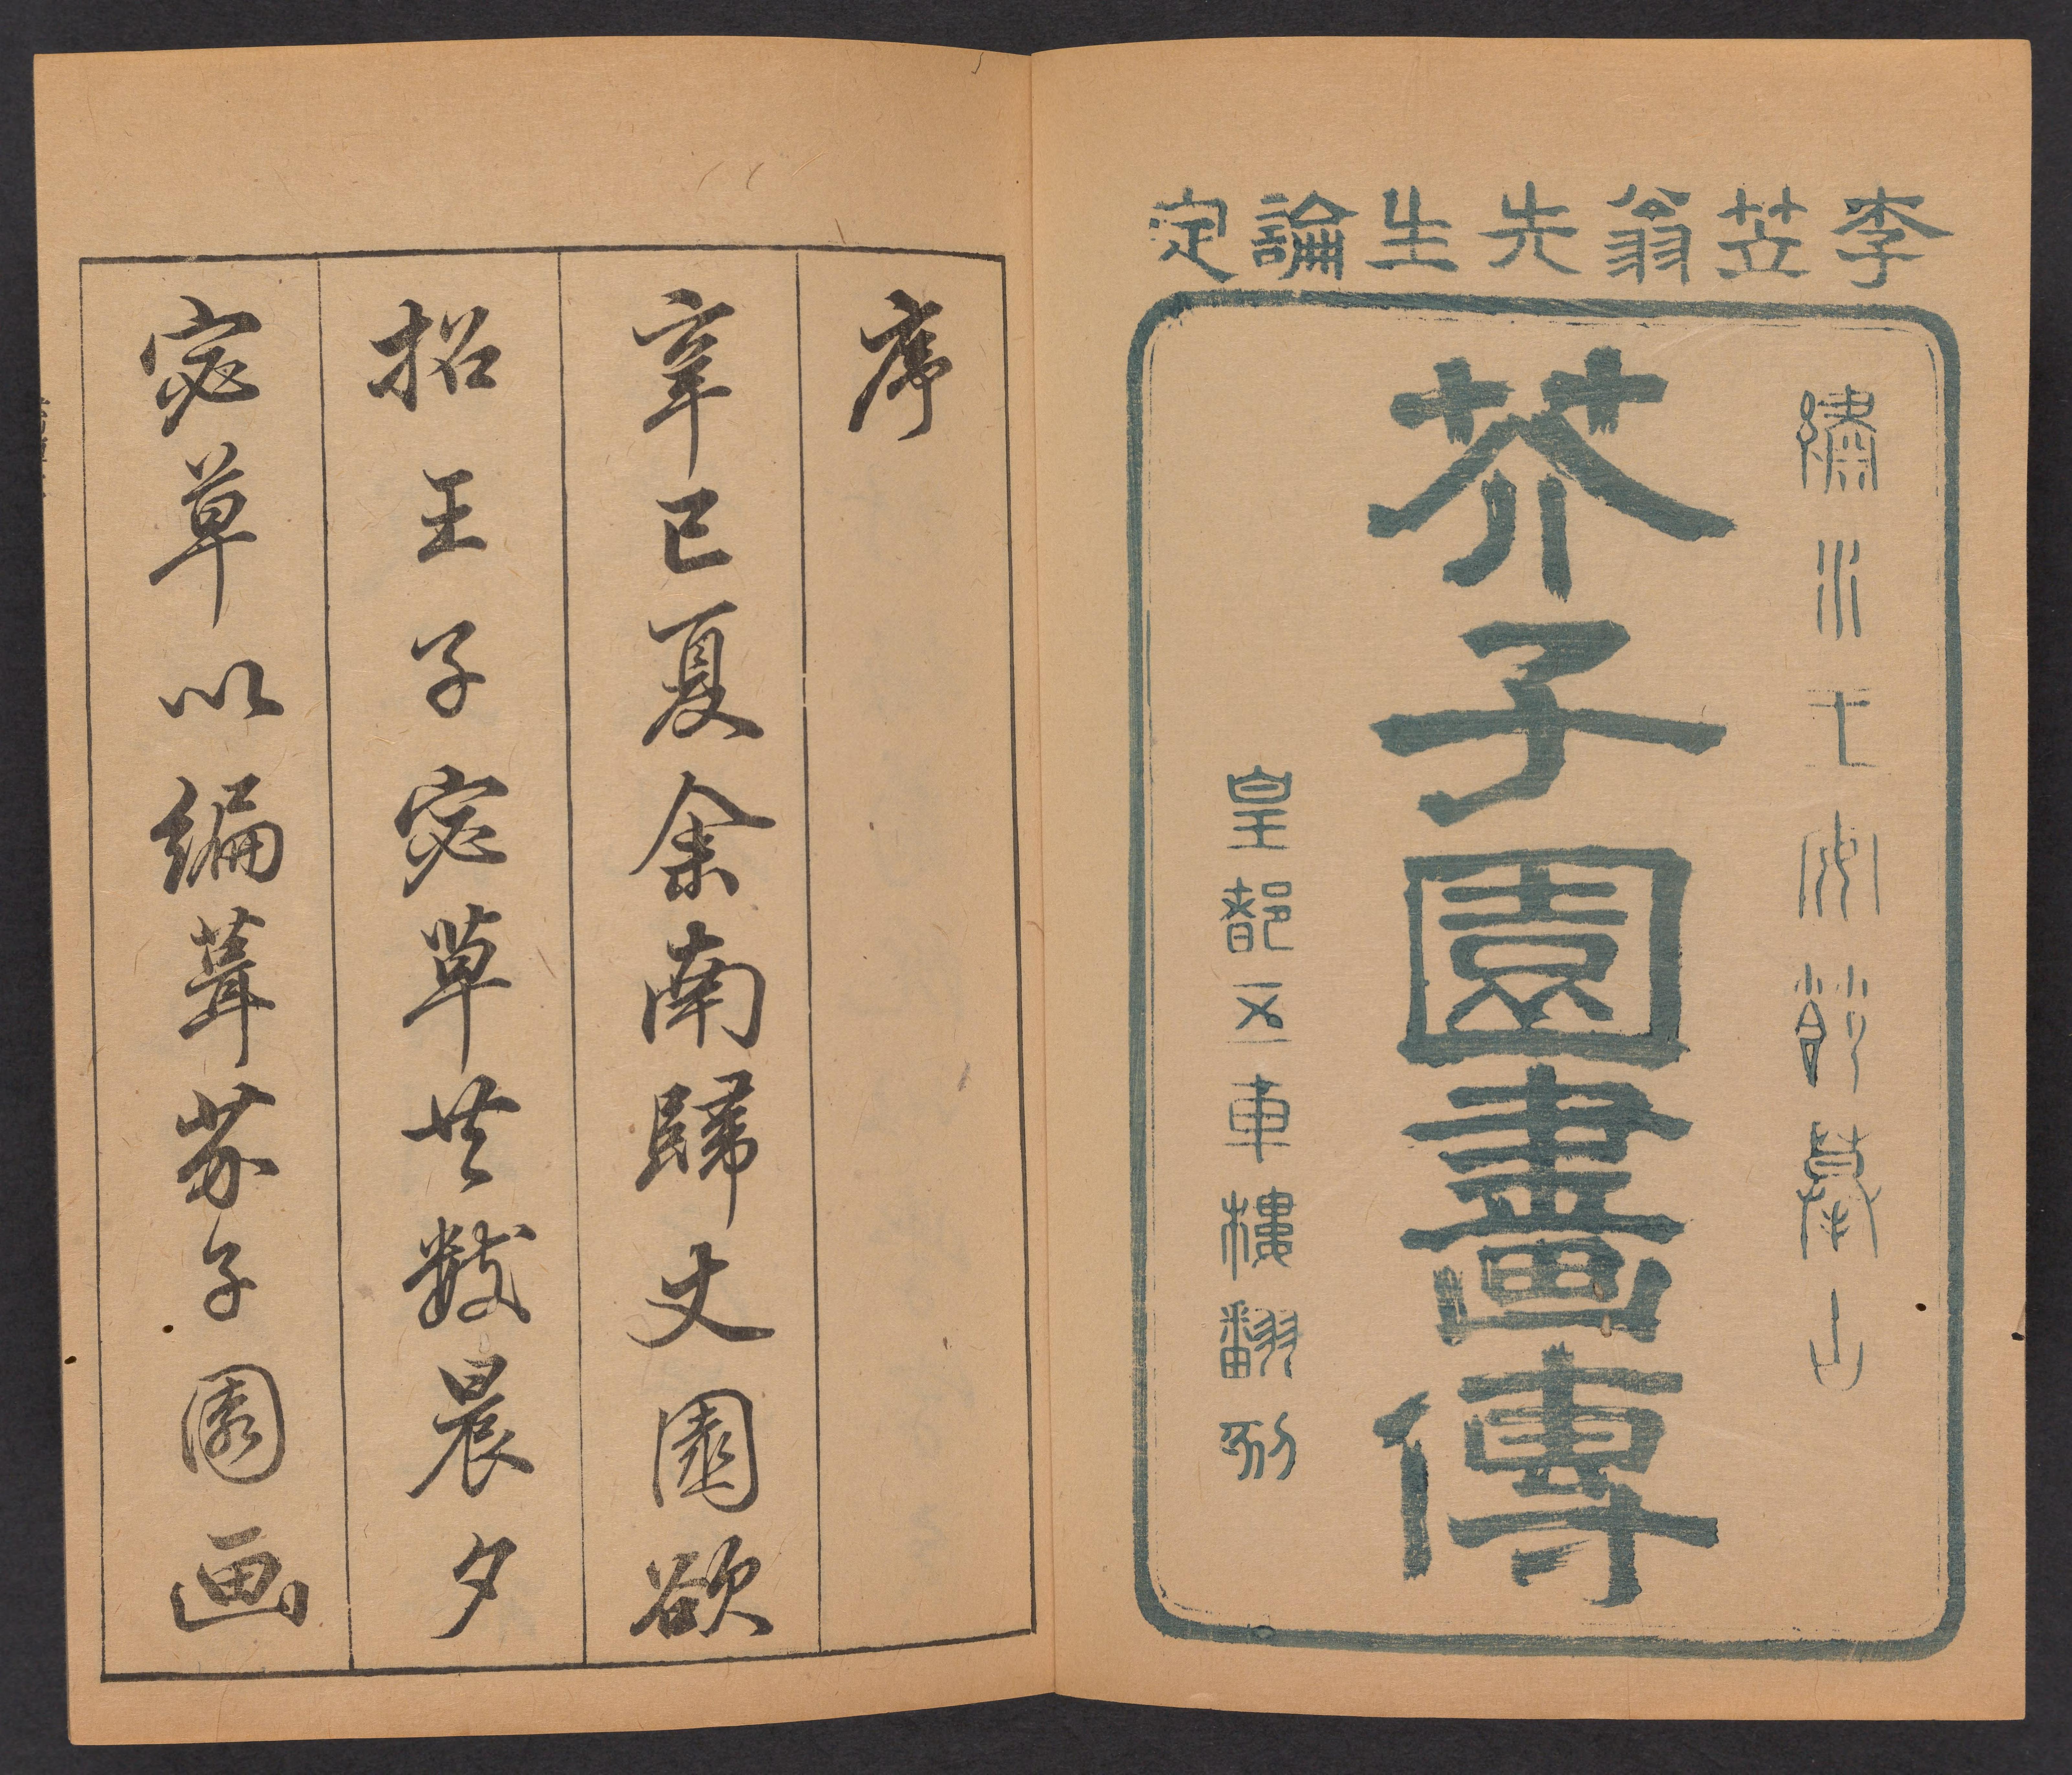 李笠翁先生論定
繡水王安節摹山
芥子園畫傳
皇都五車樓翻刻
序
辛巳夏余南歸丈園欲
招王子宓草共數晨夕
宓草以編葺芥子園画